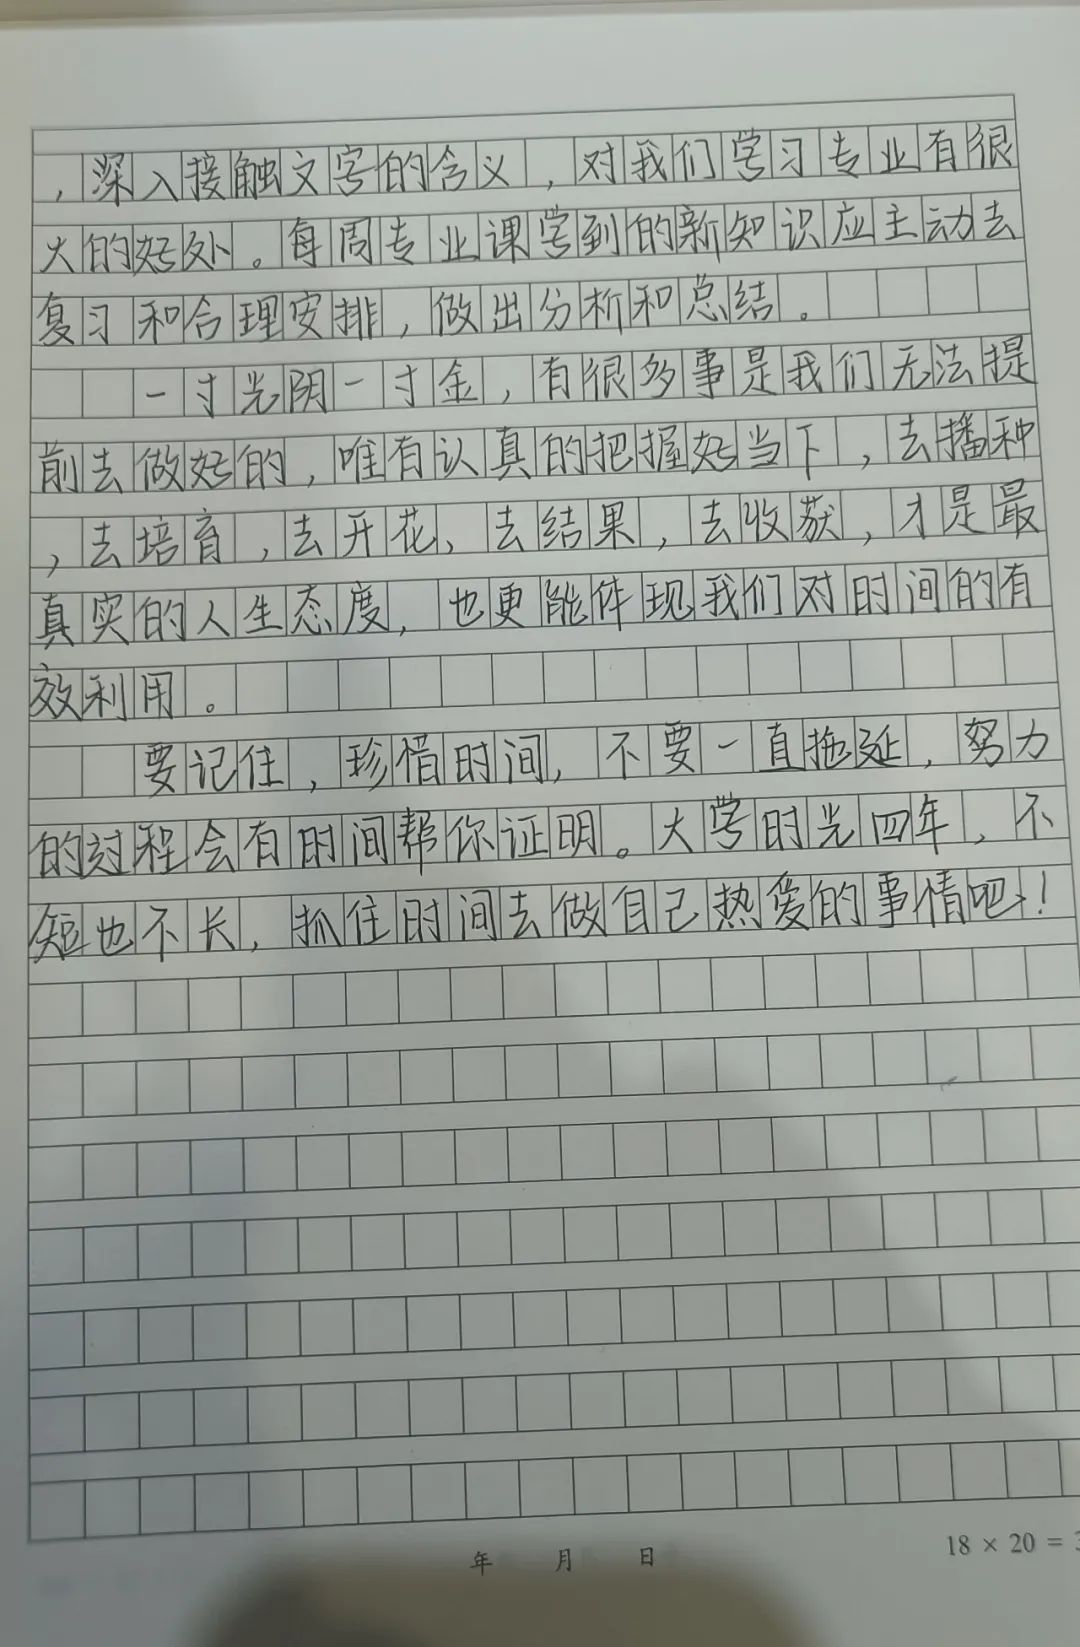 ，深入接触文字的含义，对我们学习专业有很
大的好处。每周专业课学到的新知识应主动去
复习和合理安排，做出分析和总结。
一寸光阴一寸金，有很多事是我们无法提
前去做好的，唯有认真的把握好当下，去播种
，去培育，去开花、去结果，去收获，才是最
真实的人生态度，也更能体现我们对时间的有
效利用。
要记住，珍惜时间，不要一直拖延，努力
的过程会有时间帮你证明。大学时光四年，不
短也不长，抓住时间去做自己热爱的事情吧！
年 月 日
18 × 20 =